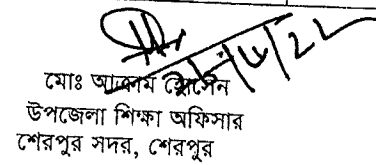 মোঃ আকরাম হোসেন
উপজেলা শিক্ষা অফিসার
শেরপুর সদর, শেরপুর